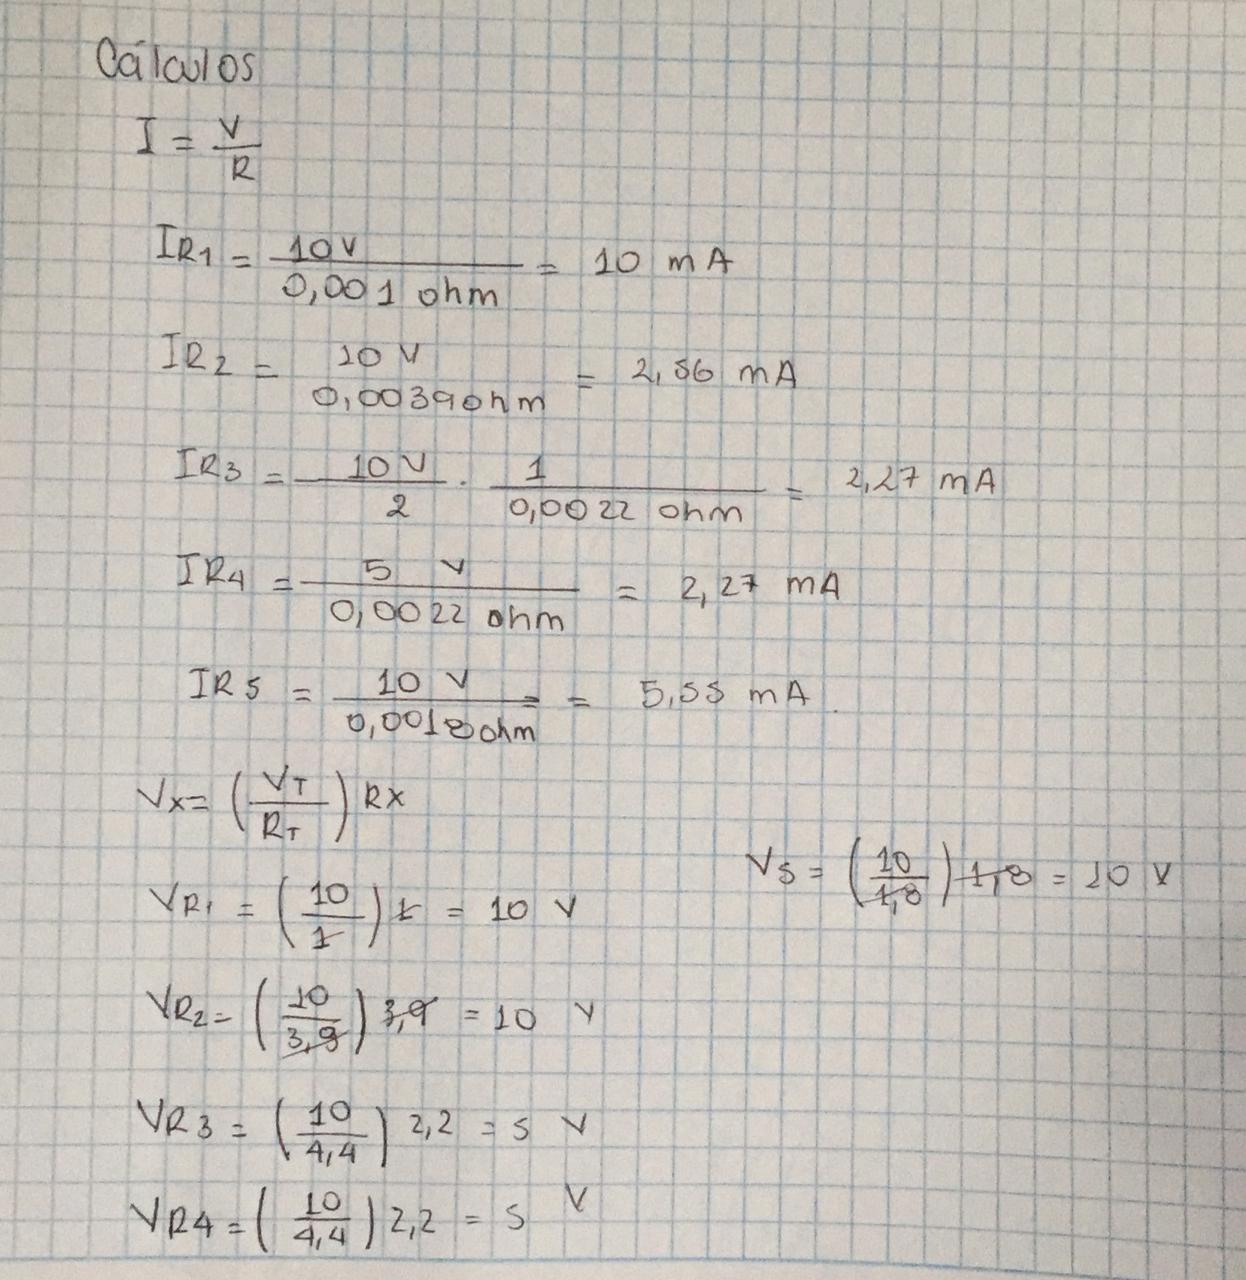 Cálculos
I = V/R
IR1 = 10 V / 0,001 ohm = 10 mA
IR2 = 10 V / 0,0039 ohm = 2,56 mA
IR3 = 10 V / 2 . 1 / 0,0022 ohm = 2,27 mA
IR4 = 5 V / 0,0022 ohm = 2,27 mA
IR5 = 10 V / 0,0018 ohm = = 5,55 mA.
Vx = (VT/RT) RX
VR1 = (10/1) 1 = 10 V
VR2 = (10/3,9) 3,9 = 10 V
VR3 = (10/4,4) 2,2 = 5 V
VR4 = (10/4,4) 2,2 = 5 V
V5 = (10/1,8) 1,8 = 10 V